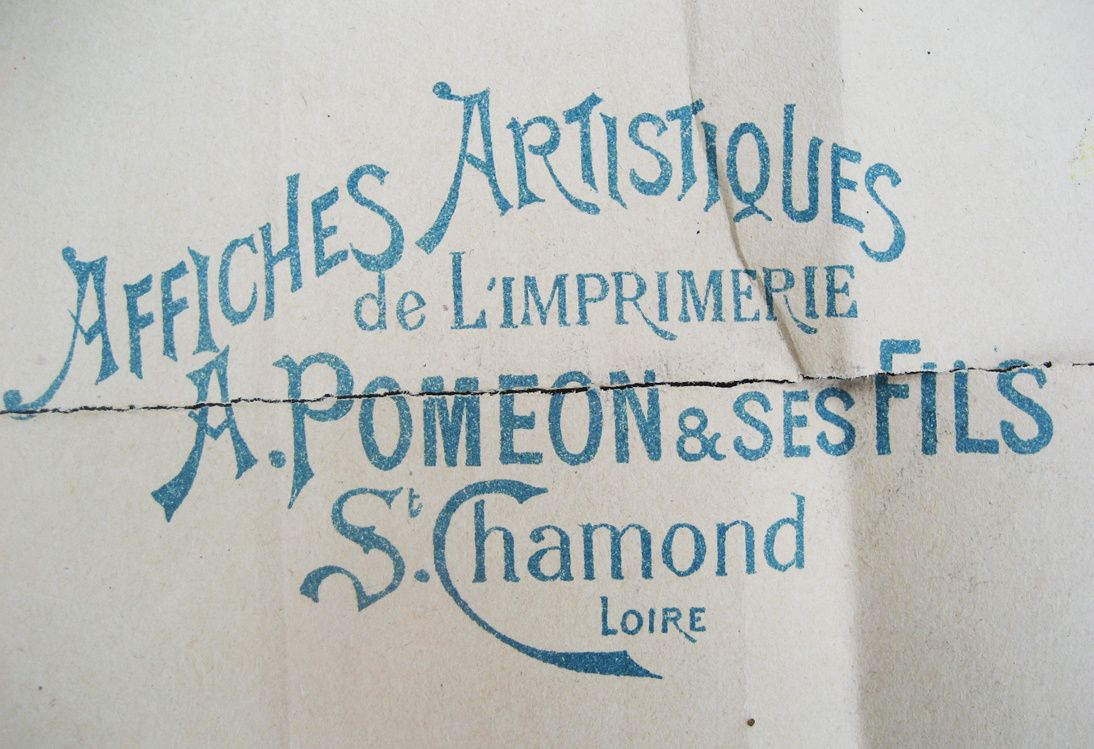 Affiches Artistiques
de L'Imprimerie
A. POMEON & SES FILS
St. Chamond
LOIRE